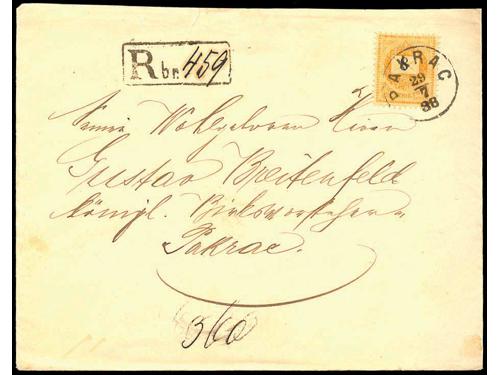 R br. 459
PAKRAC
29
7
88
Seiner Wohlgeboren Herrn
Gustav Breitenfeld
königl. Bezirksvorsteher
Pakrac.
360